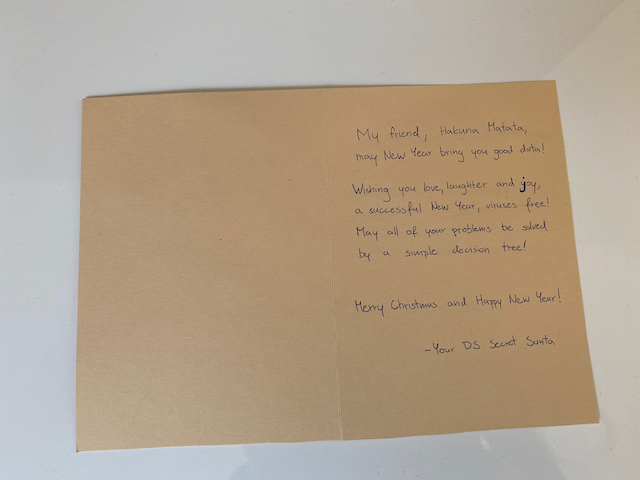 My friend, Hakuna Matata,
may New Year bring you good data!
Wishing you love, laughter and joy,
a successful New Year, viruses free!
May all of your problems be solved
by a simple decision tree!
Merry Christmas and Happy New Year!
-Your DS Secret Santa